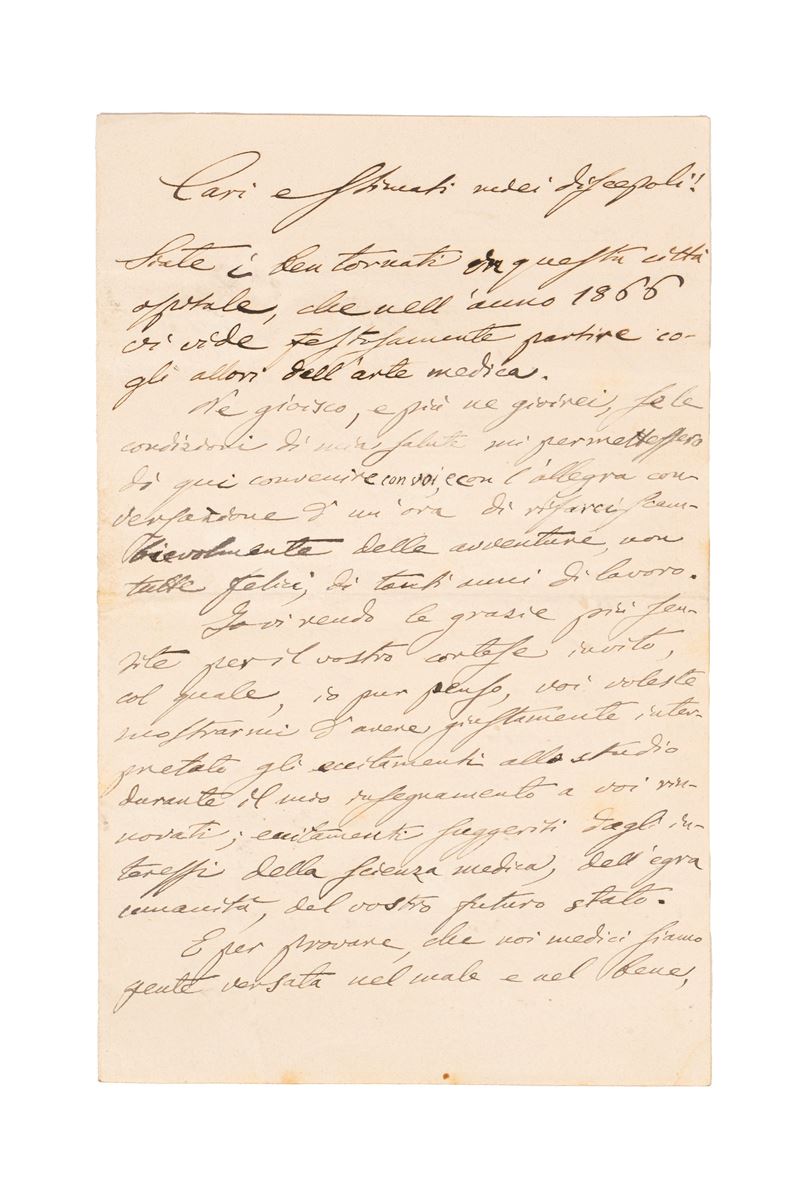 Cari e stimati miei discepoli!
Siate i ben tornati in questa città
ospitale, che nell'anno 1866
vi vide festosamente partire co-
gli allori dell'arte medica.
Ne gioisco, e più ne gioirei, se le
condizioni di mia salute mi permettessero
di qui convenire con voi, e con l'allegra con-
versazione d'un'ora di rifarci scam-
bievolmente delle avventure, non
tutte felici, di tanti anni di lavoro.
Io vi rendo le grazie più sen-
tite per il vostro cortese invito,
col quale, io pur penso, voi voleste
mostrarmi d'avere giustamente inter-
pretato gli eccitamenti allo studio
durante il mio insegnamento a voi rin-
novati; eccitamenti suggeriti dagli in-
teressi della scienza medica, dell'egra
umanità, del vostro futuro stato.
E per provare, che noi medici siamo
gente versata nel male e nel bene,